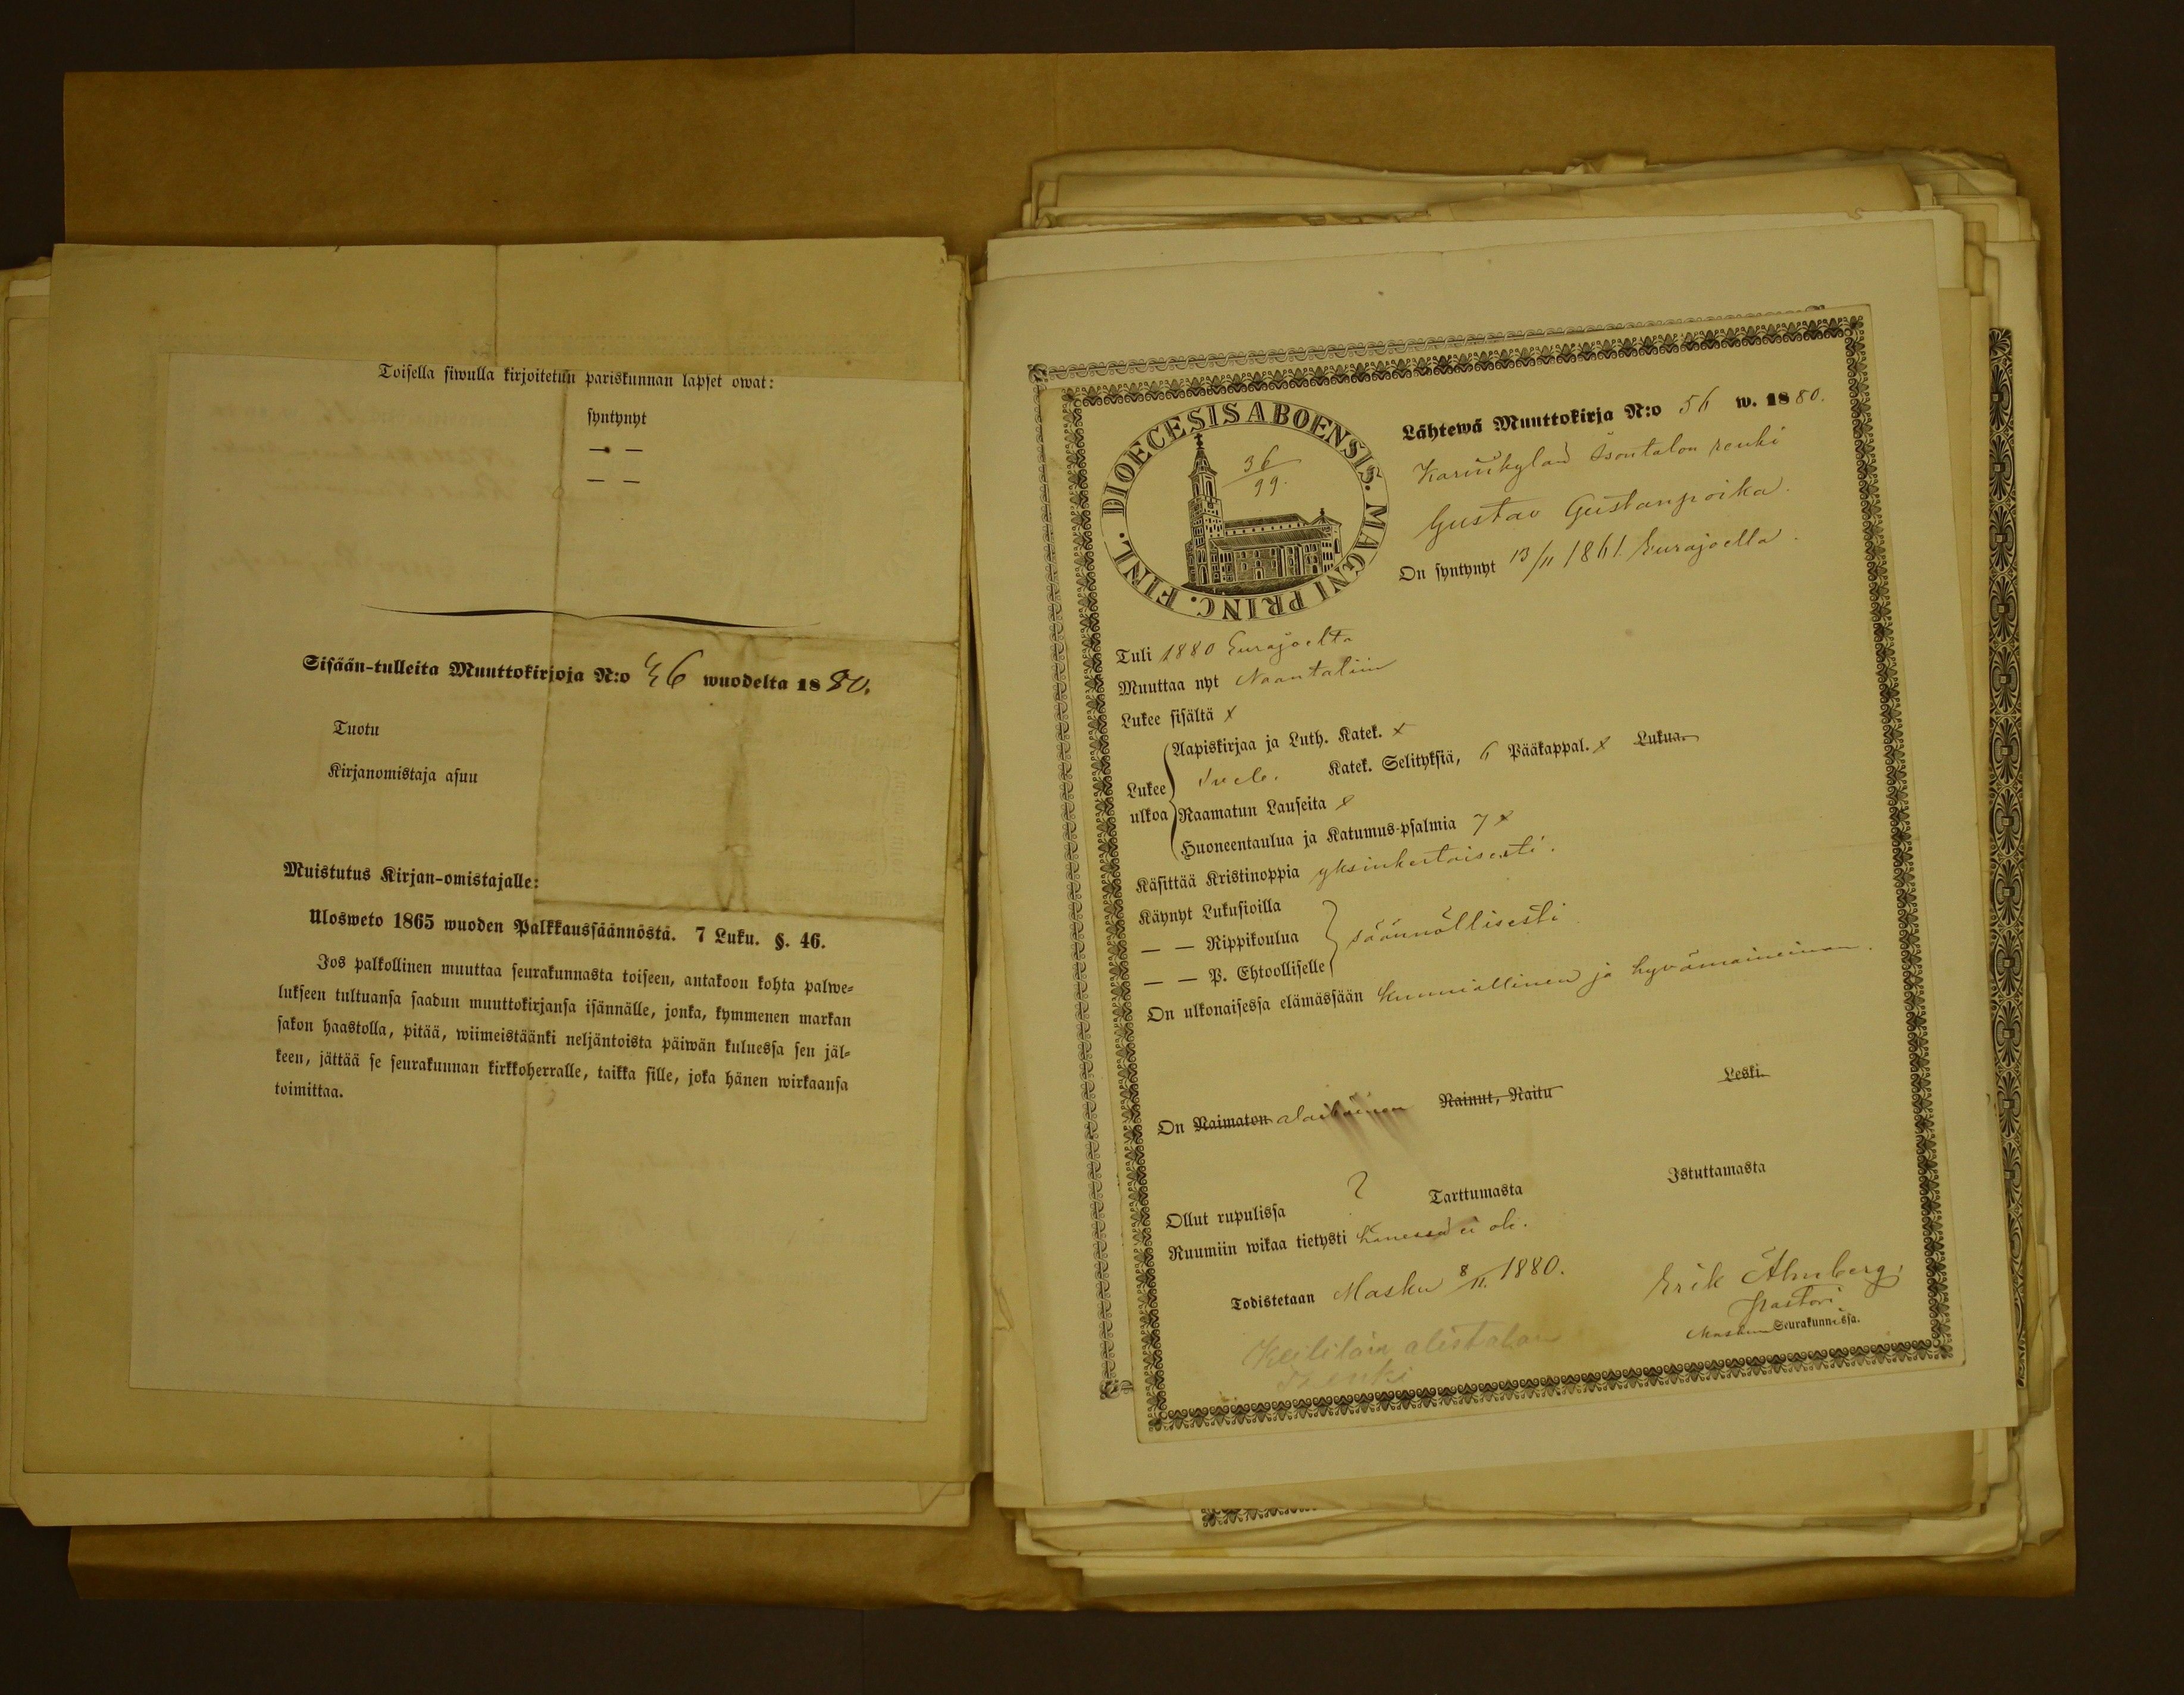 Toisella siwulla kirjoitetun pariskunnan lapset owat:
syntynyt
— —
— —
Sisään-tulleita Muuttokirjoja N:o 36 wuodelta 1880.
Tuotu
Kirjanomistaja asuu
Muistutus Kirjan-omistajalle:
Ulosweto 1865 wuoden Palkkaussäännöstä. 7 Luku. §. 46.
Jos palkollinen muuttaa seurakunnasta toiseen, antakoon kohta palwe-
lukseen tultuansa saadun muuttokirjansa isännälle, jonka, kymmenen markan
sakon haastolla, pitää, wiimeistäänki neljäntoista päiwän kuluessa sen jäl-
keen, jättää se seurakunnan kirkkoherralle, taikka sille, joka hänen wirkaansa
toimittaa.
DIOECESIS ABOENSIS. MAGNI PRINC. FINL.
36
99.
Lähtewä Muuttokirja N:o 56 w. 1880.
Isontalon renki
Gustav Gustanpoika.
On syntynyt 13/11 1861 Eurajoella.
Tuli 1880 Eurajoelta
Muuttaa nyt Naantaliin
Lukee sisältä x
Lukee ulkoa
Aapiskirjaa ja Luth. Katek. x
Katek. Selityksiä, 6 Pääkappal. x Lukua.
Raamatun Lauseita x
Huoneentaulua ja Katumus-psalmia 7 x
Käsittää Kristinoppia yksinkertaisesti.
Käynyt Lukusioilla
— — Rippikoulua säännöllisesti
— — P. Ehtoolliselle
On ulkonaisessa elämässään kunniallinen ja hyvämaineinen.
On Naimaton Nainut, Naitu Leski.
Ollut rupulissa ? Tarttumasta Istuttamasta
Ruumiin wikaa tietysti hänessä ei ole.
Todistetaan Masku 8/11. 1880.
Erik Almberg,
Pastori
Maskun Seurakunnassa.
alistalon
Renki